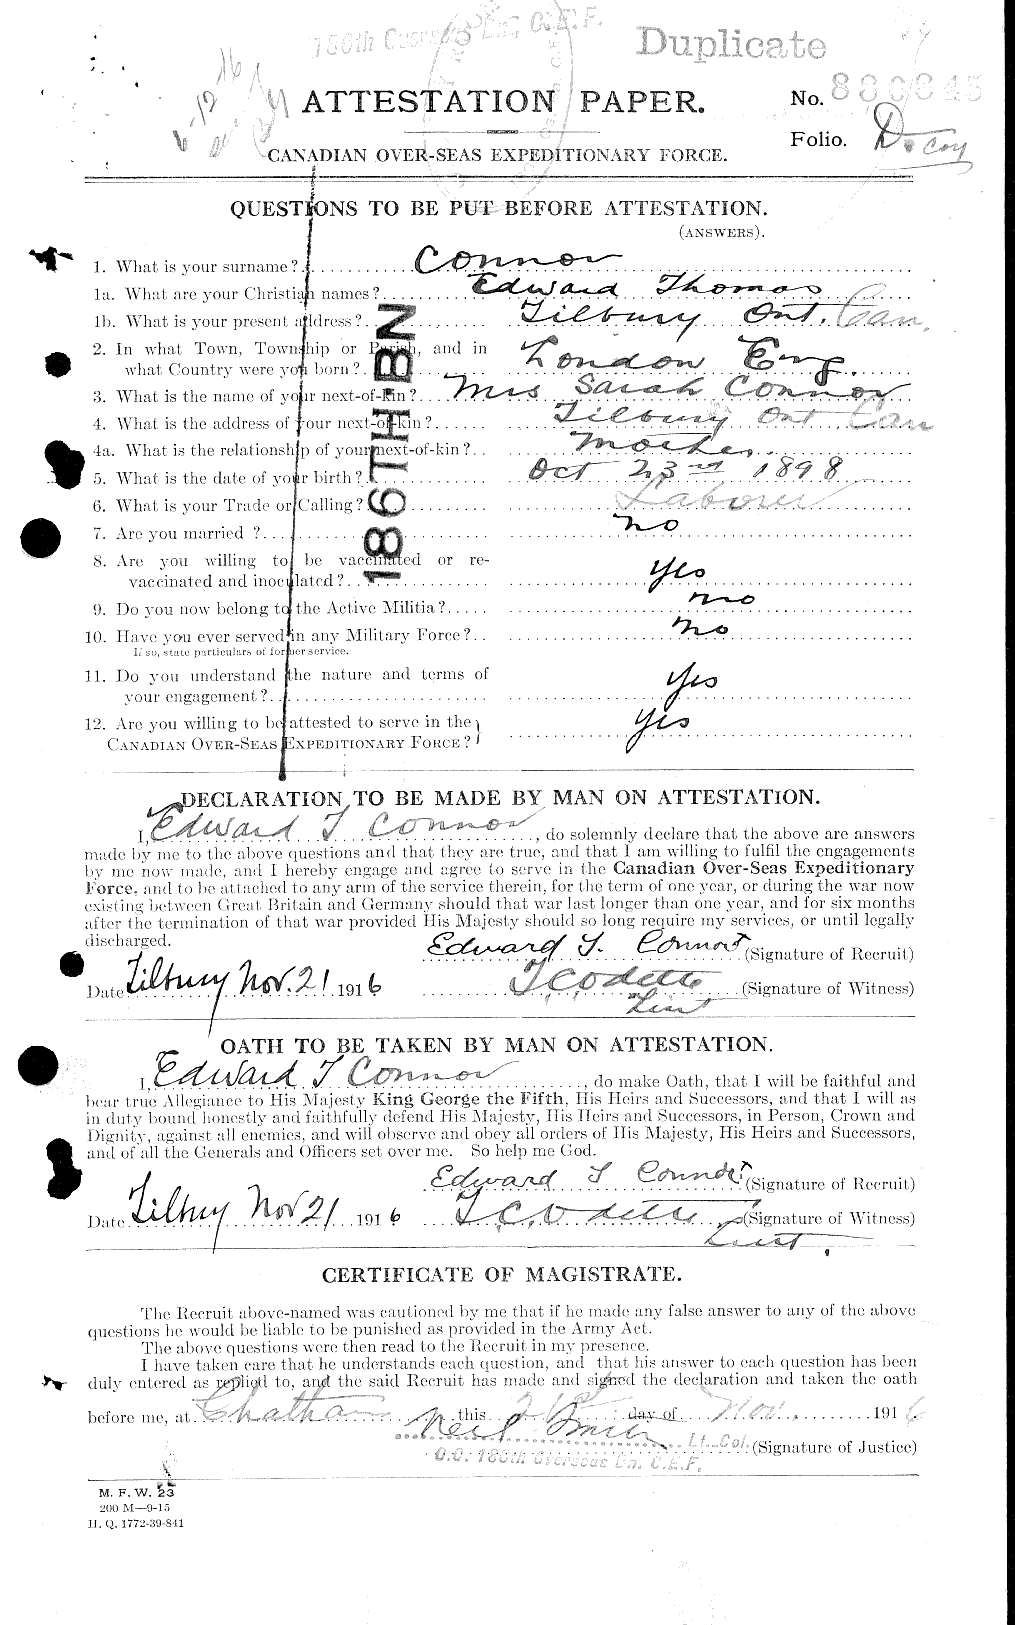 186th Overseas Bn. C.E.F.
Duplicate
ATTESTATION PAPER.
No. 880845
Folio.
CANADIAN OVER-SEAS EXPEDITIONARY FORCE.
QUESTIONS TO BE PUT BEFORE ATTESTATION.
(ANSWERS).
1. What is your surname? Connor
1a. What are your Christian names? Edward Thomas
1b. What is your present address? Tilbury Ont. Can.
2. In what Town, Township or Parish, and in
what Country were you born? London Eng.
3. What is the name of your next-of-kin? Mrs Sarah Connor
4. What is the address of your next-of-kin? Tilbury Ont Can
4a. What is the relationship of your next-of-kin? Mother
5. What is the date of your birth? Oct 23rd 1898
6. What is your Trade or Calling? Laborer
7. Are you married ? No
8. Are you willing to be vaccinated or re-
vaccinated and inoculated? Yes
9. Do you now belong to the Active Militia? No
10. Have you ever served in any Military Force? No
If so, state particulars of former service.
11. Do you understand the nature and terms of
your engagement? Yes
12. Are you willing to be attested to serve in the
CANADIAN OVER-SEAS EXPEDITIONARY FORCE? Yes
186TH. BN
DECLARATION TO BE MADE BY MAN ON ATTESTATION.
I, Edward T Connor, do solemnly declare that the above are answers
made by me to the above questions and that they are true, and that I am willing to fulfil the engagements
by me now made, and I hereby engage and agree to serve in the Canadian Over-Seas Expeditionary
Force, and to be attached to any arm of the service therein, for the term of one year, or during the war now
existing between Great Britain and Germany should that war last longer than one year, and for six months
after the termination of that war provided His Majesty should so long require my services, or until legally
discharged.
Edward T. Connor (Signature of Recruit)
Date Tilbury Nov. 21 1916 T C Odette (Signature of Witness)
Lieut
OATH TO BE TAKEN BY MAN ON ATTESTATION.
I, Edward T Connor, do make Oath, that I will be faithful and
bear true Allegiance to His Majesty King George the Fifth, His Heirs and Successors, and that I will as
in duty bound honestly and faithfully defend His Majesty, His Heirs and Successors, in Person, Crown and
Dignity, against all enemies, and will observe and obey all orders of His Majesty, His Heirs and Successors,
and of all the Generals and Officers set over me. So help me God.
Edward T Connor (Signature of Recruit)
Date Tilbury Nov 21 1916 T. C. Odette (Signature of Witness)
Lieut.
CERTIFICATE OF MAGISTRATE.
The Recruit above-named was cautioned by me that if he made any false answer to any of the above
questions he would be liable to be punished as provided in the Army Act.
The above questions were then read to the Recruit in my presence.
I have taken care that he understands each question, and that his answer to each question has been
duly entered as replied to, and the said Recruit has made and signed the declaration and taken the oath
before me, at Chatham this 21st day of Nov. 1916
Neil Smith Lt. Col. (Signature of Justice)
O.C. 186th Overseas Bn. C.E.F.
M. F. W. 23
200 M—9-15
H. Q. 1772-39-841